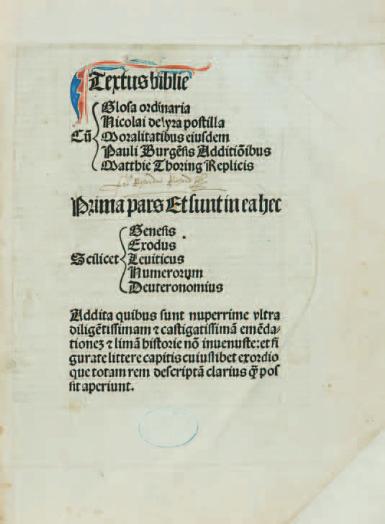 Textus biblie
Cū
Glosa ordinaria
Nicolai de lyra postilla
Moralitatibus eiusdem
Pauli Burgēsis Additiōibus
Matthie Thoring Replicis
Prima pars Et sunt in ea hec
Scilicet
Genesis
Exodus
Leuiticus
Numerorum
Deuteronomius
Addita quibus sunt nuperrime vltra
diligētissimam ⁊ castigatissimā emēda-
tionez ⁊ limā historie nō inuenuste: et fi
gurate littere capitis cuiuslibet exordio
que totam rem descriptā clarius ꝙ̄ pos
sit aperiunt.